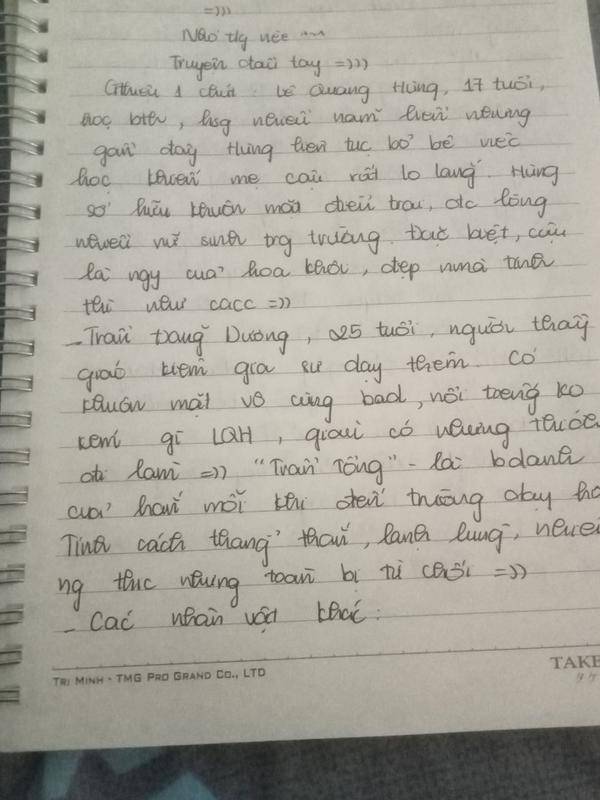 =)))
Não tg vée ~~
Truyện đầu tay =)))
Gthiệu 1 chút : Lê Quang Hùng, 17 tuổi,
học bth, hsg nhiều năm liền nhưng
gần đây Hùng liên tục bỏ bê việc
học khiến mẹ cậu rất lo lắng. Hùng
sở hữu khuôn mặt điển trai, đc lòng
nhiều nữ sinh trg trường. Đặc biệt, cậu
là ngy của hoa khôi, đẹp nmà tính
thì như cacc =))
- Trần Đăng Dương, 25 tuổi, người thầy
giáo kiêm gia sư dạy thêm. Có
khuôn mặt vô cùng bad, nổi tiếng ko
kém gì LQH, giàu có nhưng thước
đi làm =)) "Trần Tổng" - là bdanh
của hắn mỗi khi đến trường dạy họ
Tính cách thẳng thắn, lạnh lùng, nhiề
ng thíc nhưng toàn bị từ chối =))
- Các nhân vật khác :
TRI MINH - TMG PRO GRAND CO., LTD
TAKE